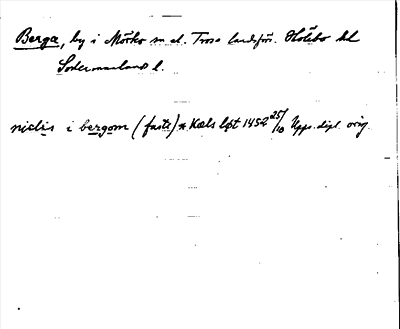 Berga, by i Mörkö sn el. Trosa landsförs. Hölebo hd
Södermanlands l.
niclis i bergom (faste) * Kæls 1452 25/10 Upps. dipl. orig.